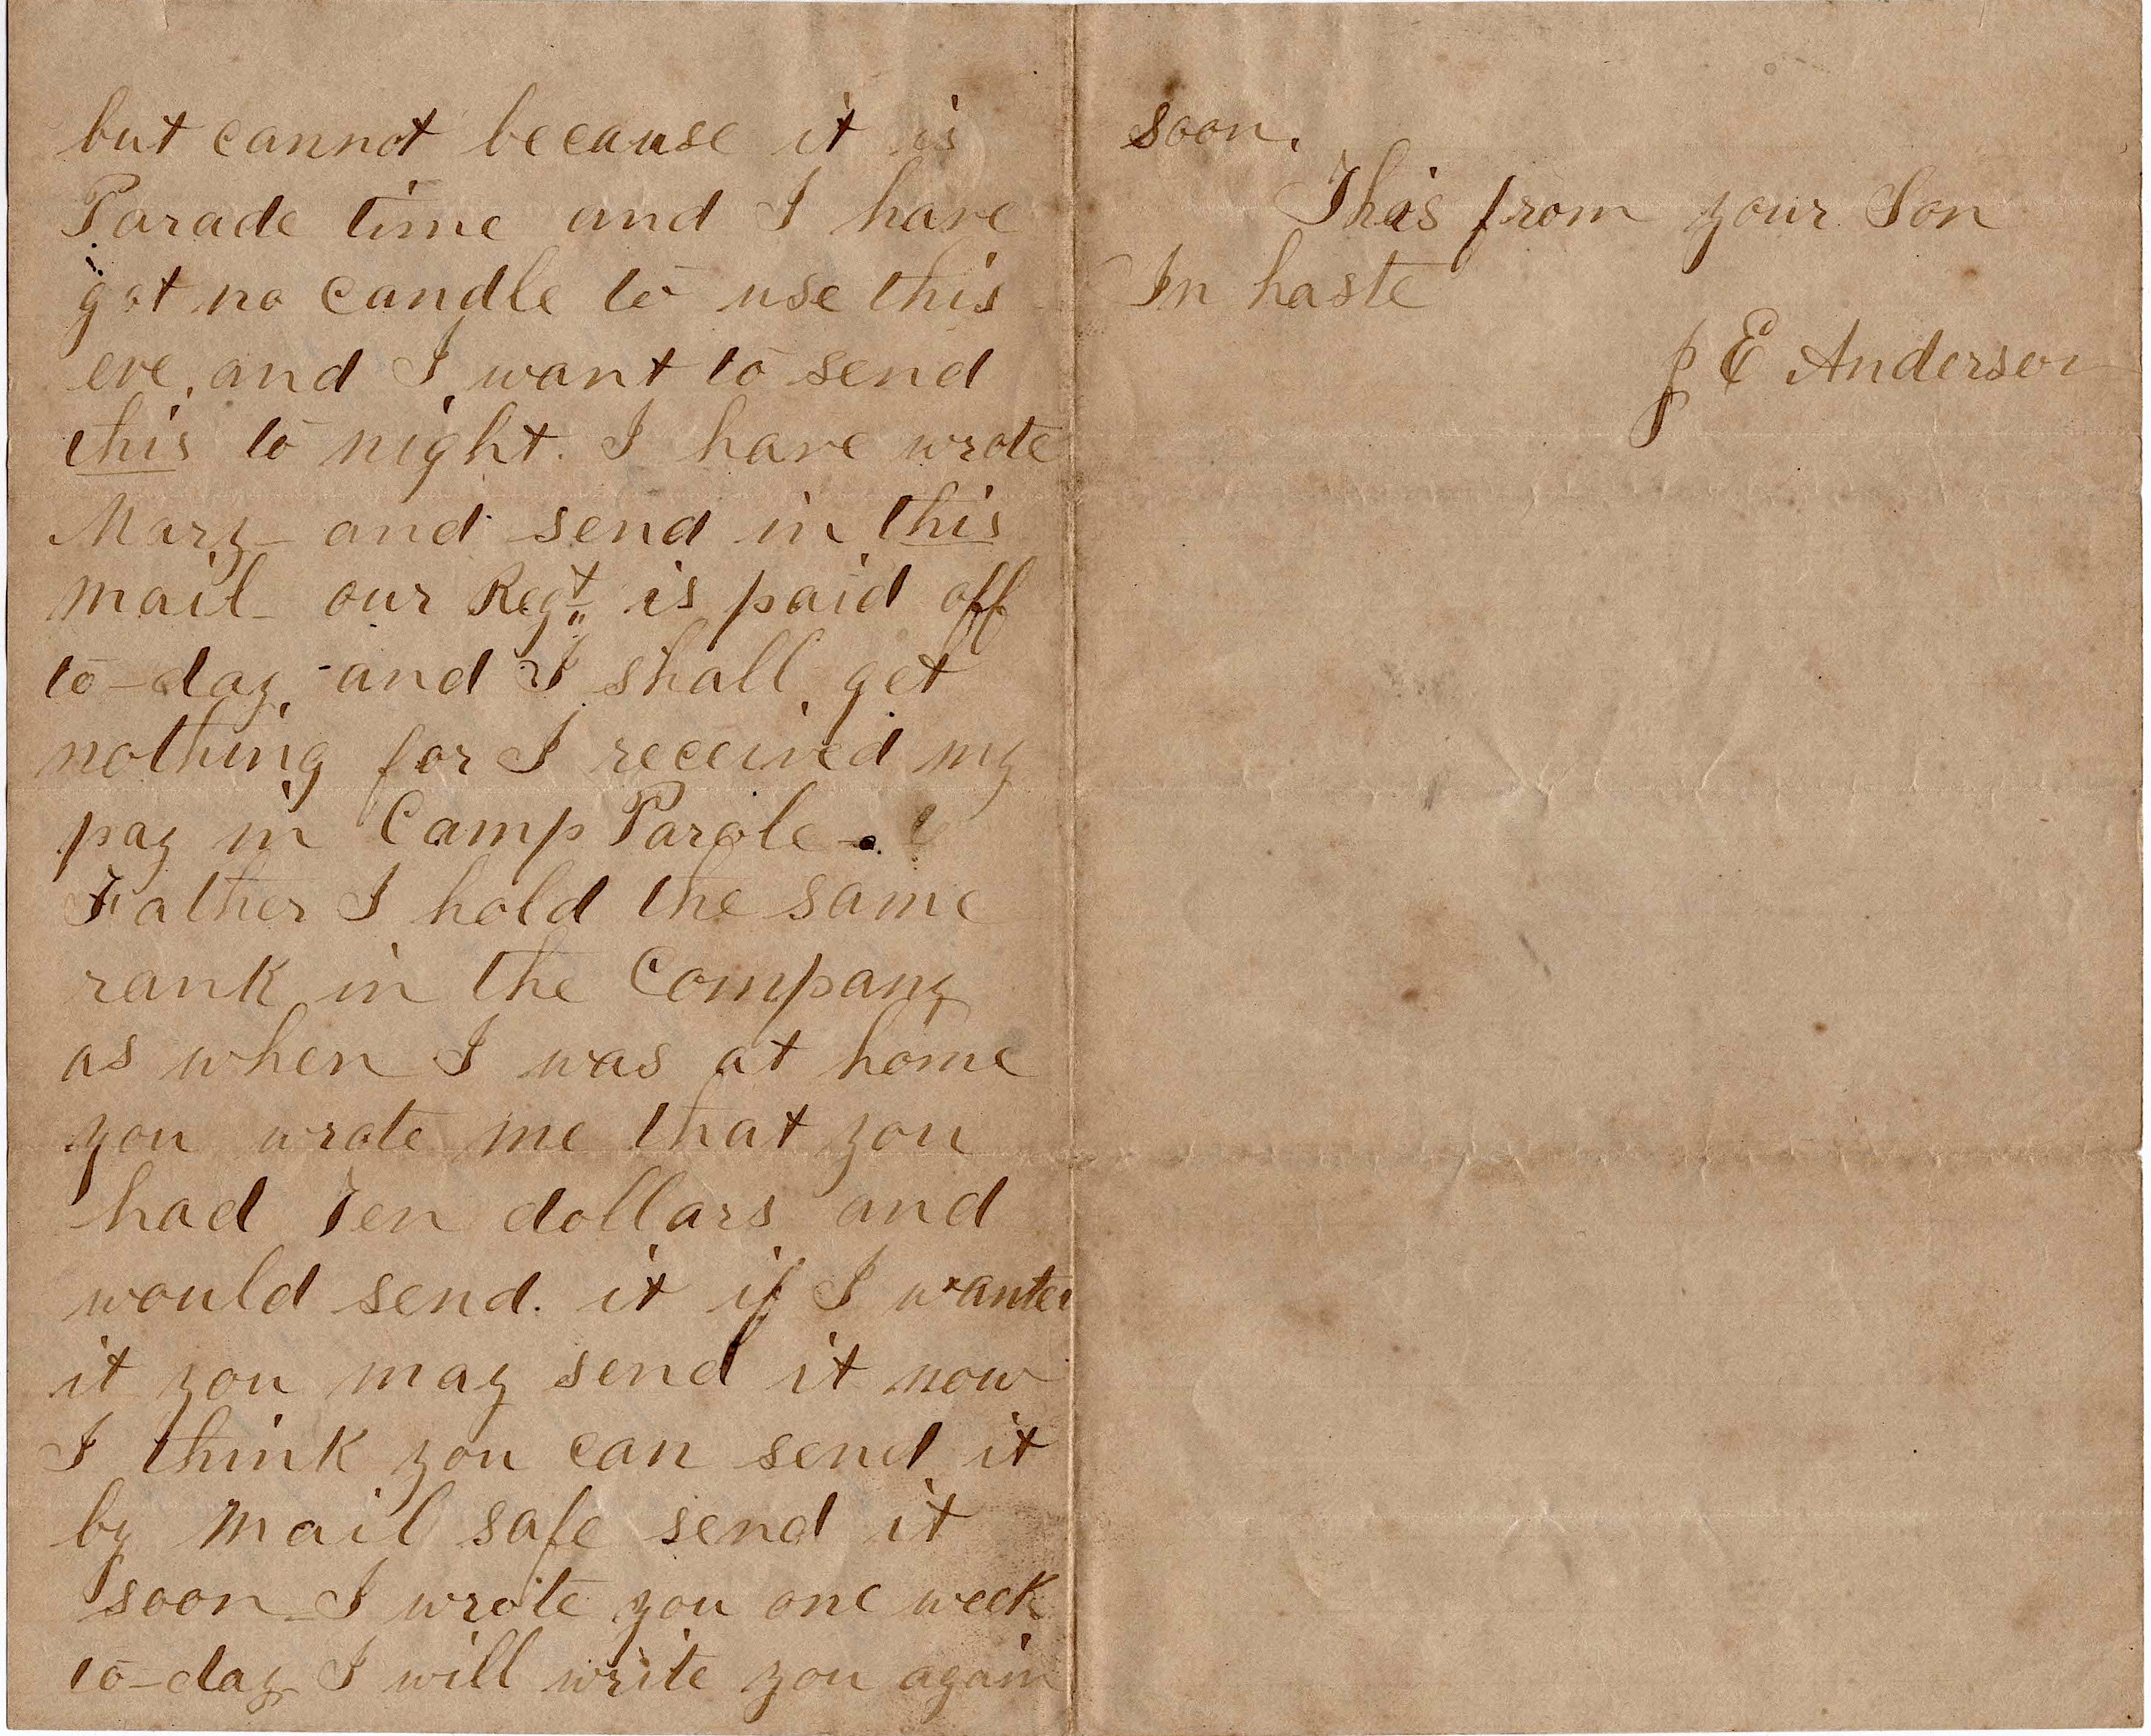 but cannot because it is
Parade time and I have
got no candle to use this
eve, and I want to send
this to night. I have wrote
Mary and send in this
mail our Regt. is paid off
to-day, and I shall get
nothing for I received my
pay in Camp Parole.
Father I hold the same
rank in the Company
as when I was at home
you wrote me that you
had Ten dollars and
would send it if I wanted
it you may send it now
I think you can send it
by mail safe send it
soon I wrote you one week
to-day I will write you again
soon.
This from your Son
In haste
J E Anderson